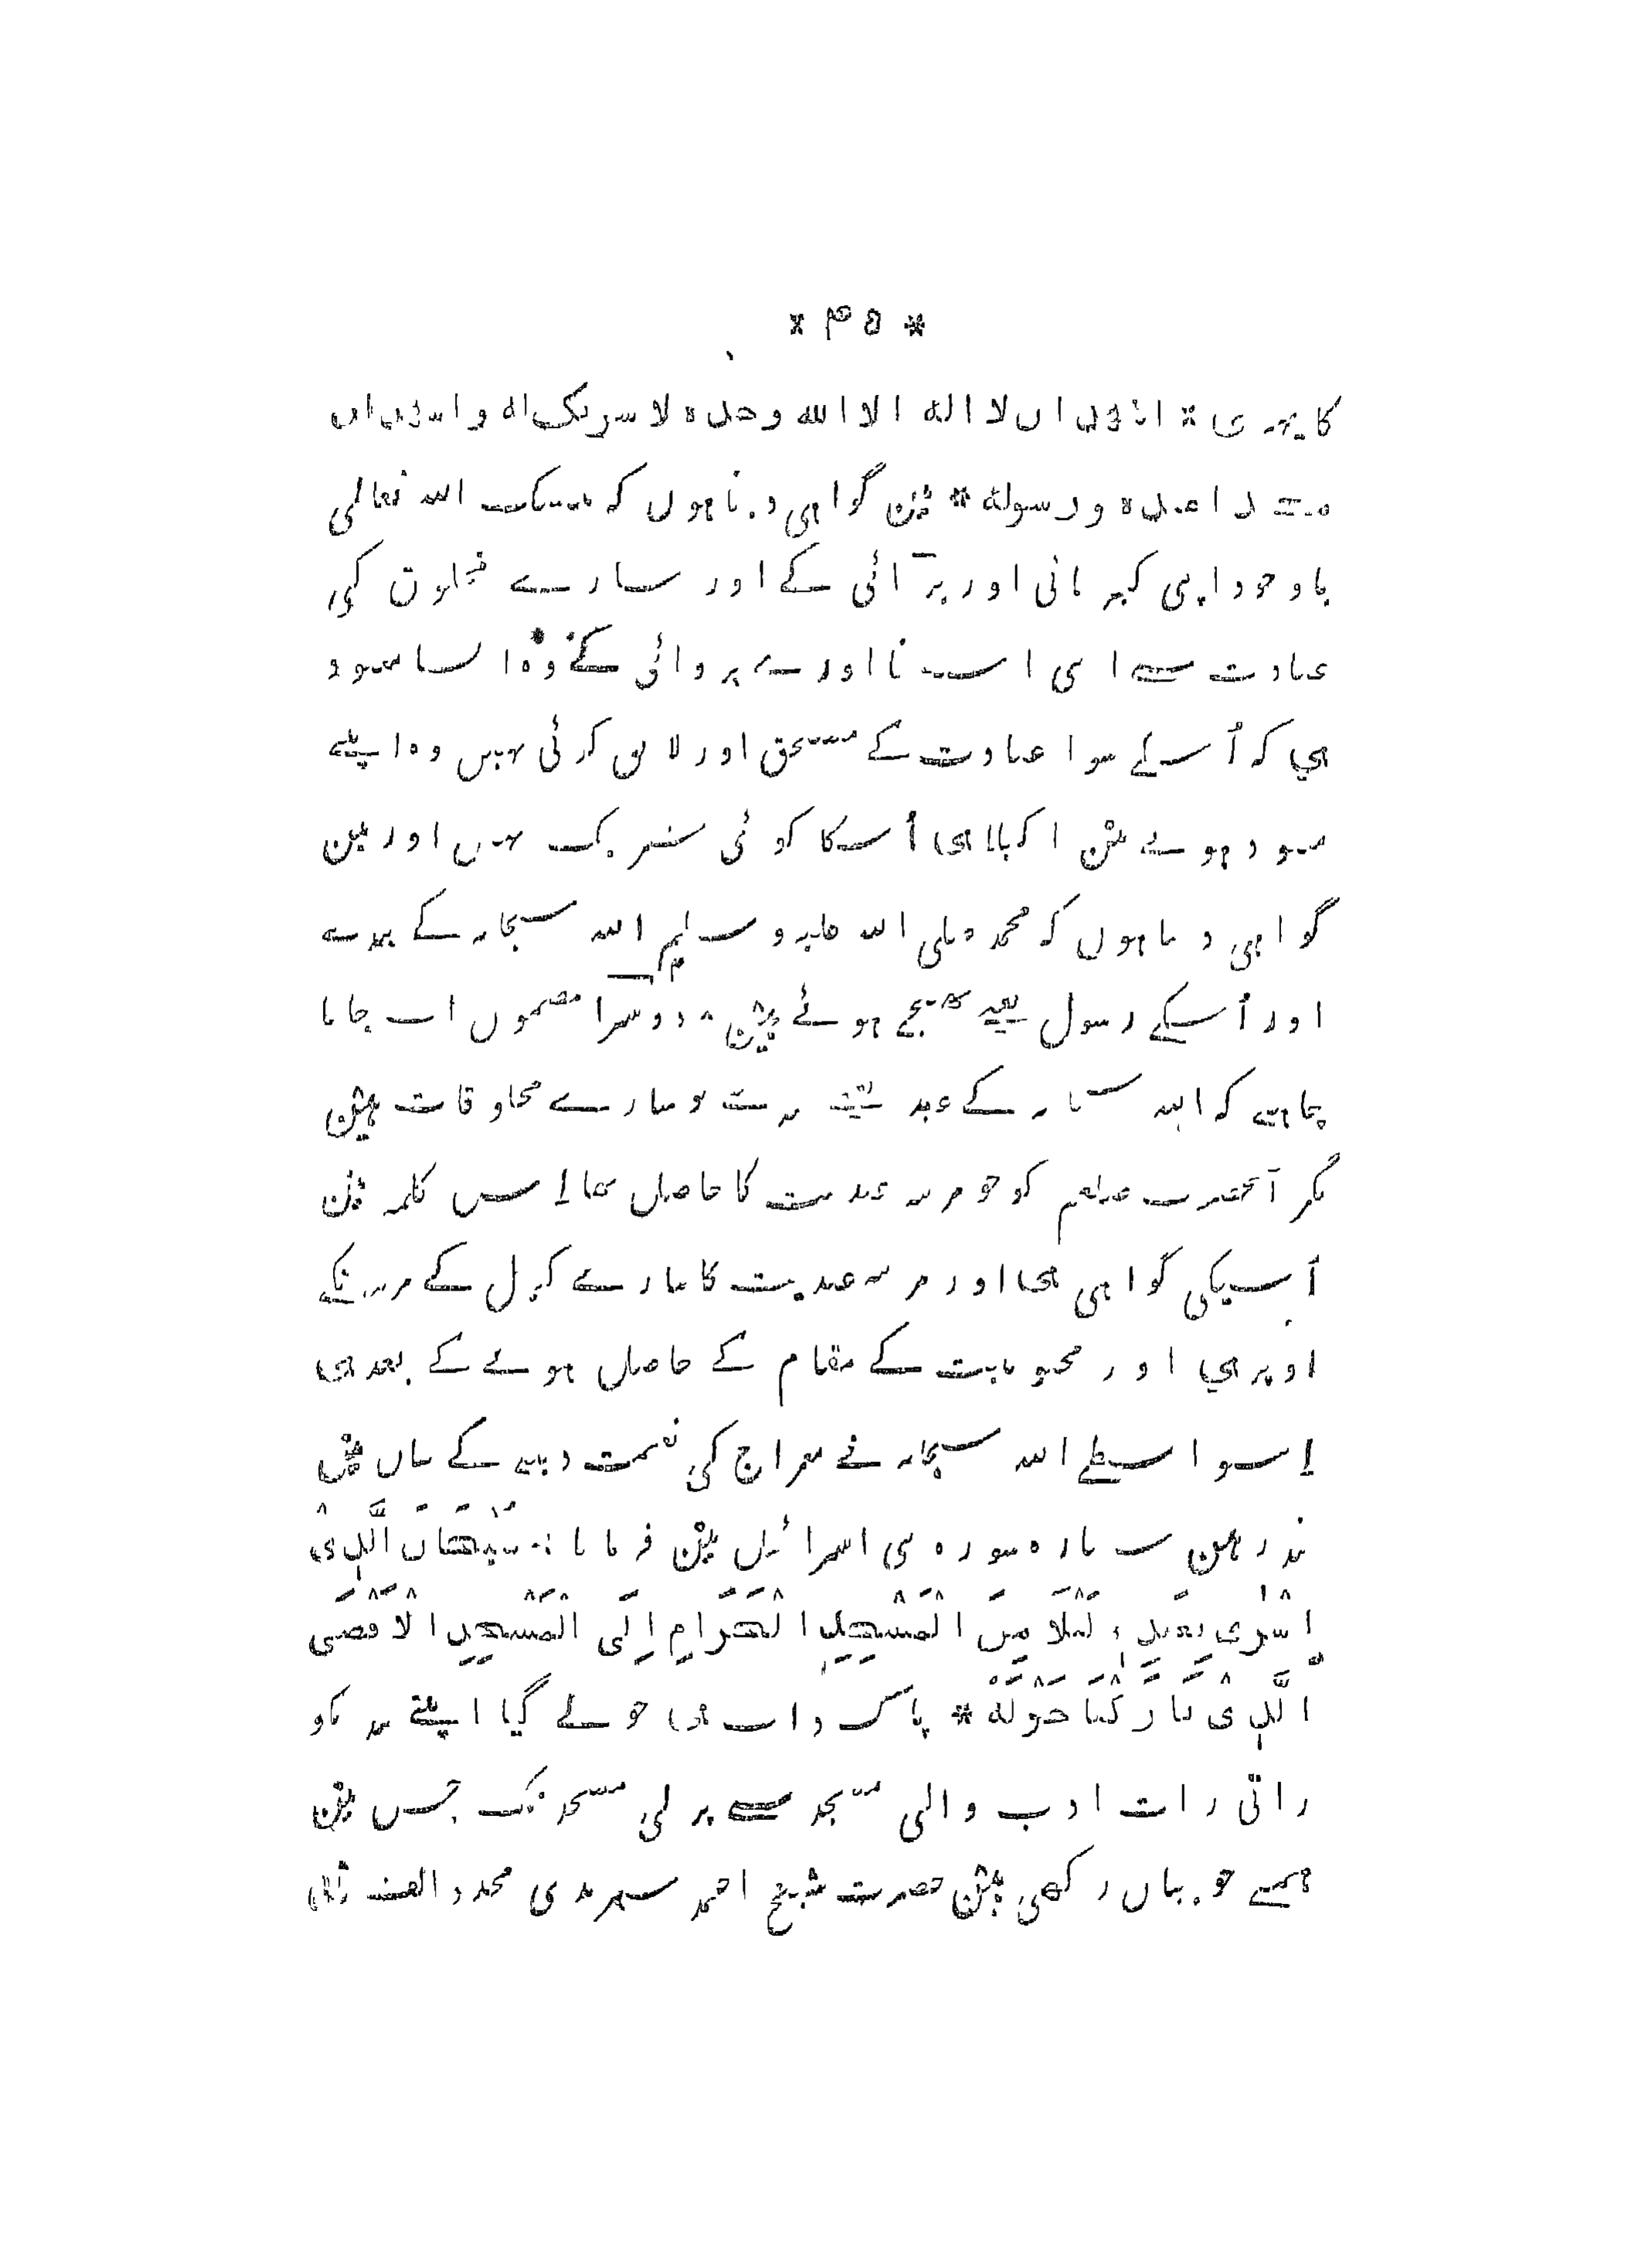 * ۴۵ *
کا یہہ ہی * اشهد ان لا اله الا الله وحده لا شریک له و اشهد ان
محمدا عبده و رسوله * مین گواہی دیتا ہوں کہ بیشک الله تعالی
باوجود اپنی کبریائی اور بڑائی کے اور سارے مخلوق کی
عبادت سے اسی استغنا اور بے پروائی کے وہ ایسا معبود
ہی کہ اُسکے سوا عبادت کے مستحق اور لایق کوئی نہیں وہ اپنے
معبود ہونے مین اکیلا ہی اُسکا کوئی شریک نہیں اور مین
گواہی دیتا ہوں کہ محمد صلی الله علیہ و سلم الله سبحانہ کے بندے
اور اُسکے رسول بھیجے ہوئے ہین * دوسرا مضمون اب جانا
چاہئے کہ الله سبحانہ کے عبد تو سارے مخلوقات ہین
مگر آنحضرت صلعم کو جو مرتبہ عبدیت کا حاصل تھا اِس کلمہ مین
اُسیکی گواہی ہی اور مرتبہ عبدیت کا سارے کمال کے مرتبہ کے
اوپر ہی اور محبوبیت کے مقام کے حاصل ہونے کے بعد ہی
اِسواسطے الله سبحانہ نے معراج کی نعمت دینے کے بیان مین
پندرہین سپارہ سورہ بنی اسرائیل مین فرمایا * سُبْحَانَ الَّذِیْ
اَسْرٰی بِعَبْدِهٖ لَیْلًا مِنَ الْمَسْجِدِ الْحَرَامِ اِلَی الْمَسْجِدِ الْاَقْصَی
الَّذِیْ بَارَکْنَا حَوْلَهٗ * پاک ذات ہی جو لے گیا اپنے بندیکو
راتی رات ادب والی مسجد سے پرلی مسجد تک جس مین
ہمنے خوبیاں رکھی ہین حضرت شیخ احمد سرہندی مجدد الف ثانی